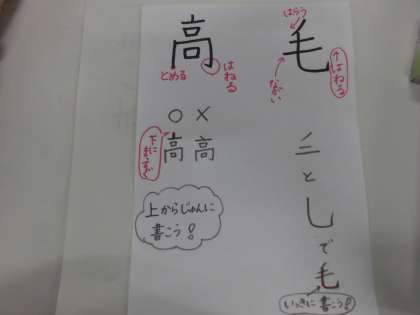 高
とめる
はねる
○ ×
下に
まっすぐ
高 高
上からじゅんに
書こう!
毛
はらう
↑はねる
ながい
三
と
し
で
毛
いっきに書こう!